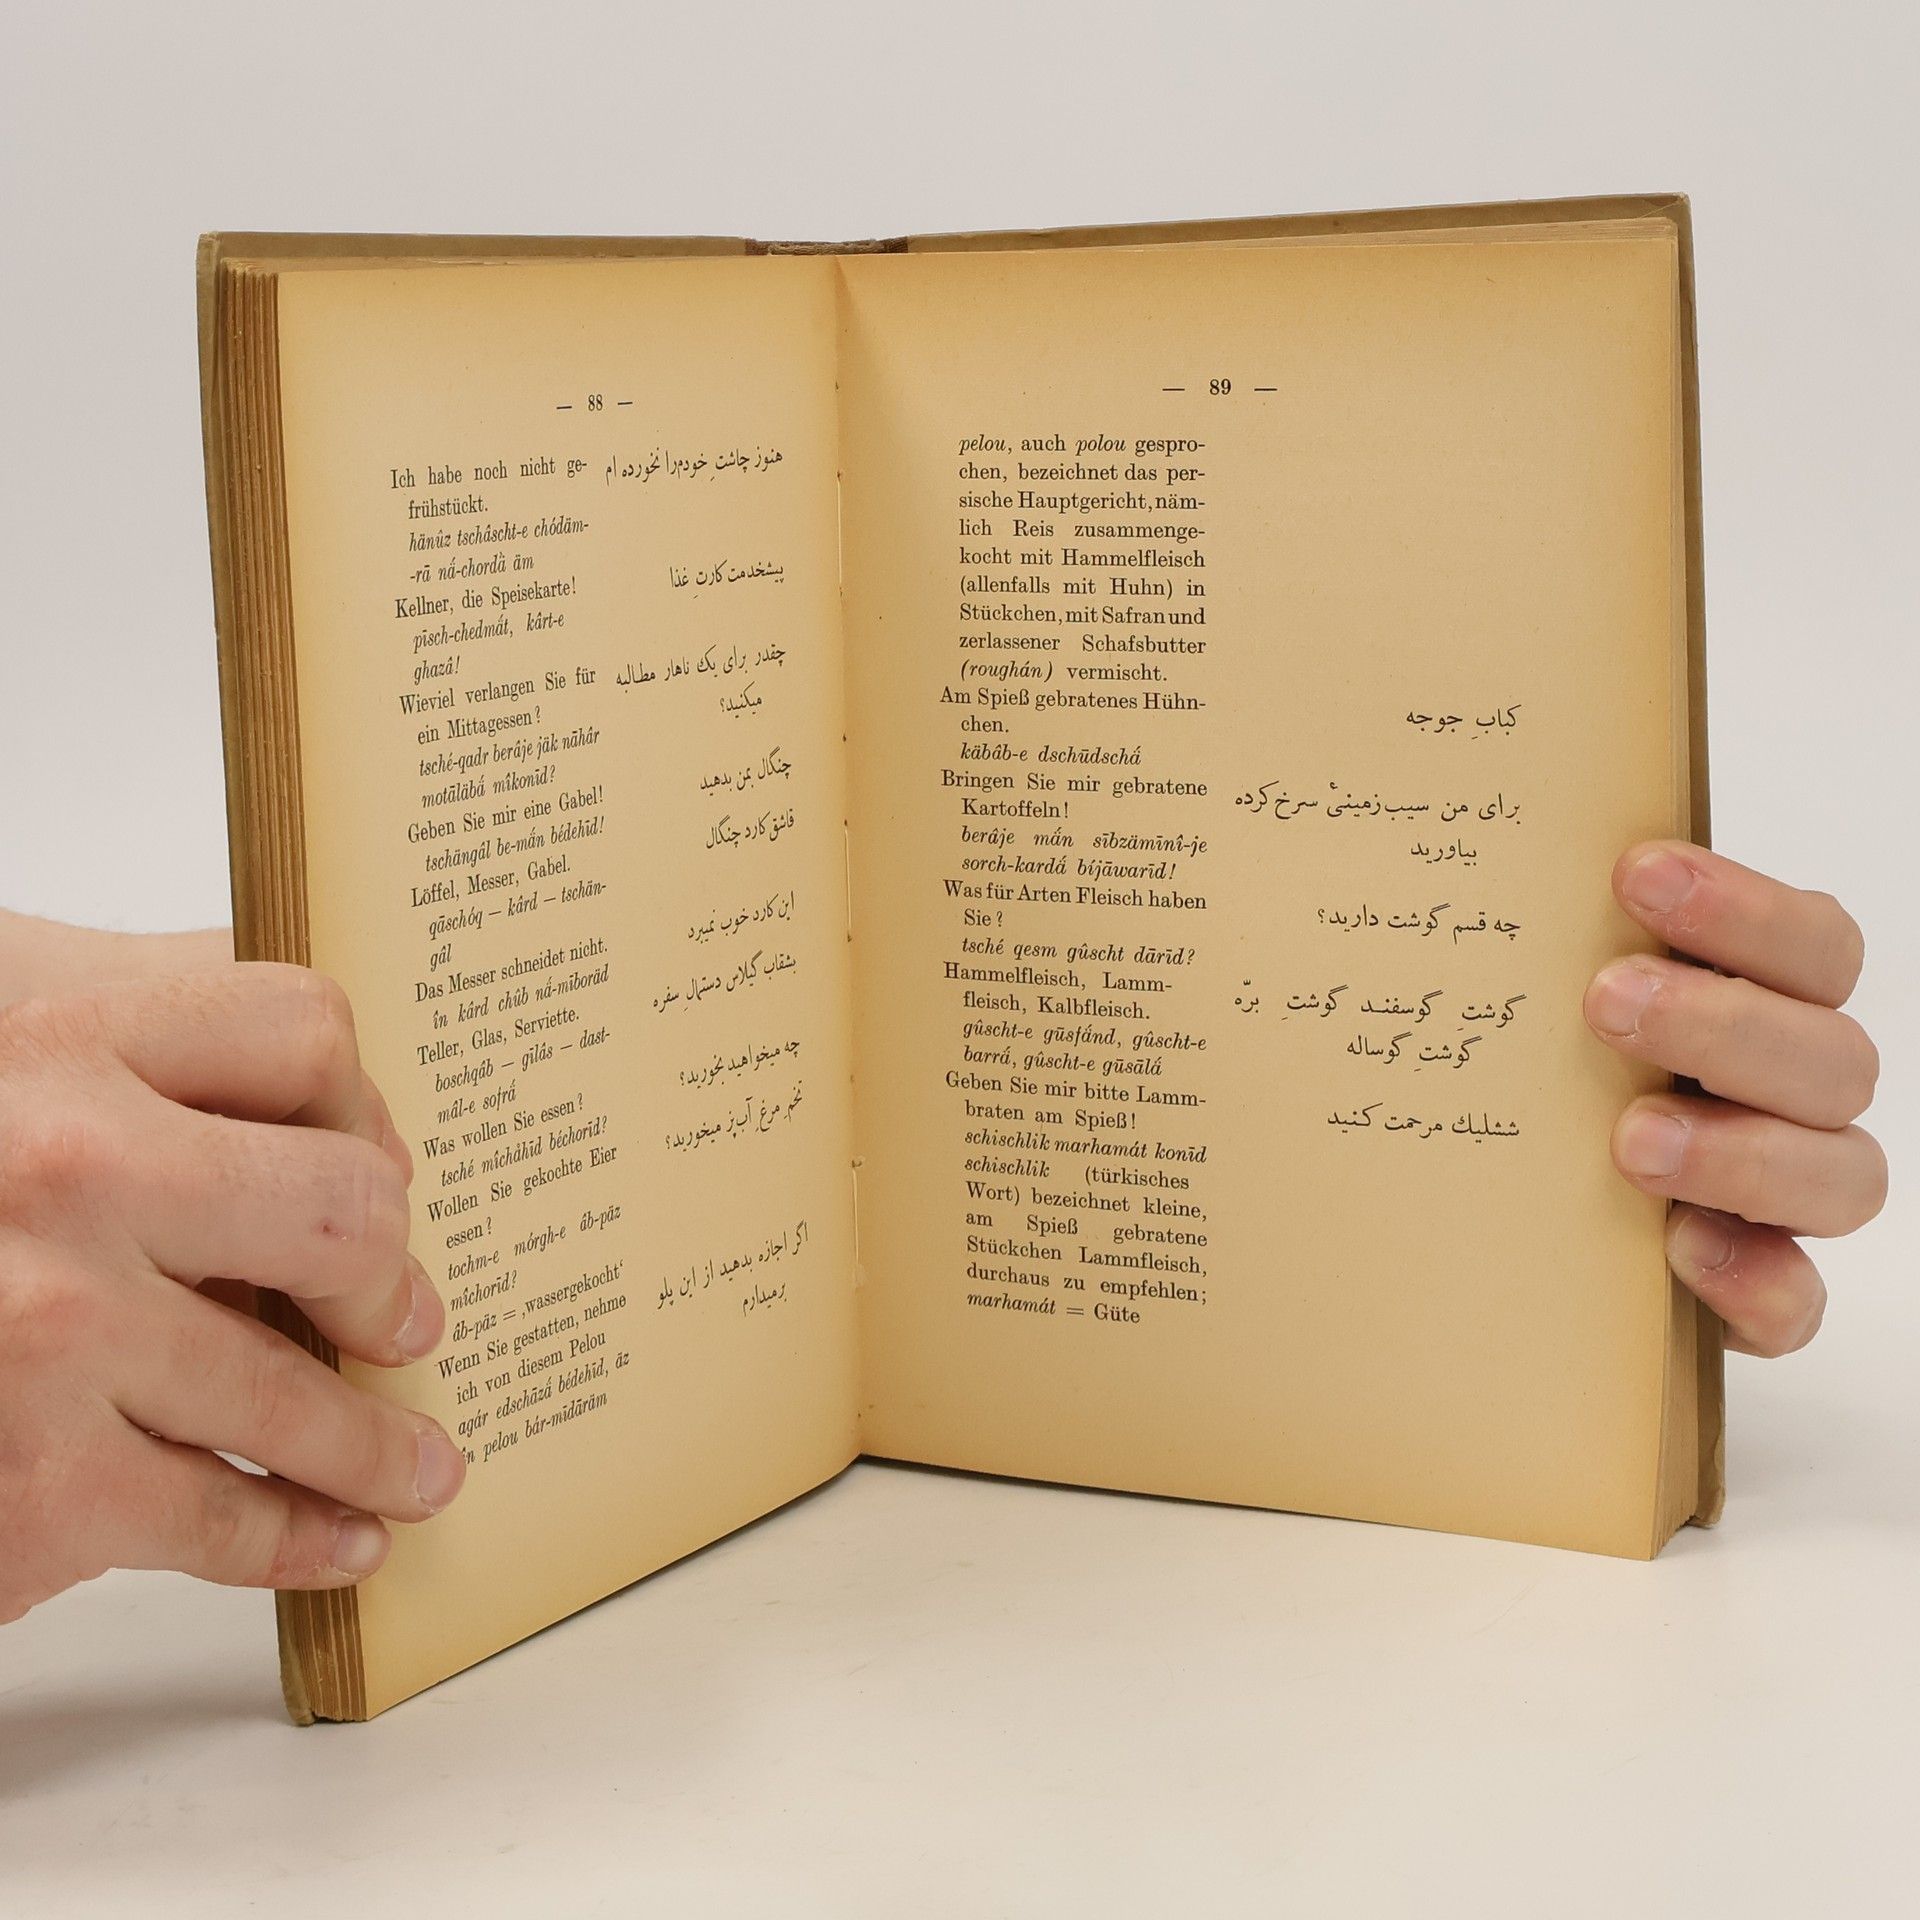 — 88 —
Ich habe noch nicht ge-
frühstückt.
هنوز چاشتِ خودم‌را نخورده ام
hänûz tschâscht-e chódäm-
-rā nấ-chordằ äm
Kellner, die Speisekarte!
پیشخدمت کارتِ غذا
pīsch-chedmất, kârt-e
ghazâ!
Wieviel verlangen Sie für
ein Mittagessen?
چقدر برای یك ناهار مطالبه
میکنید؟
tsché-qadr berâje jäk nāhâr
motāläbấ mîkonīd?
Geben Sie mir eine Gabel!
چنگال بمن بدهید
tschängâl be-mấn bédehīd!
Löffel, Messer, Gabel.
قاشق کارد چنگال
qāschóq — kârd — tschän-
gâl
Das Messer schneidet nicht.
این کارد خوب نمیبرد
în kârd chûb nấ-mīboräd
Teller, Glas, Serviette.
بشقاب گیلاس دستمالِ سفره
boschqâb — gīlâs — dast-
mâl-e sofrấ
Was wollen Sie essen?
چه میخواهید بخورید؟
tsché mîchâhīd béchorīd?
Wollen Sie gekochte Eier
essen?
تخمِ مرغِ آب‌پز میخورید؟
tochm-e mórgh-e âb-päz
mîchorīd?
âb-päz = ‚wassergekocht‘
Wenn Sie gestatten, nehme
ich von diesem Pelou
اگر اجازه بدهید از این پلو
برمیدارم
agár edschāzấ bédehīd, äz
în pelou bár-mīdāräm
— 89 —
pelou, auch polou gespro-
chen, bezeichnet das per-
sische Hauptgericht, näm-
lich Reis zusammenge-
kocht mit Hammelfleisch
(allenfalls mit Huhn) in
Stückchen, mit Safran und
zerlassener Schafsbutter
(roughán) vermischt.
Am Spieß gebratenes Hühn-
chen.
کبابِ جوجه
käbâb-e dschūdschấ
Bringen Sie mir gebratene
Kartoffeln!
برای من سیب‌زمینیٔ سرخ‌کرده
بیاورید
berâje mấn sībzämīnî-je
sorch-kardấ bíjāwarīd!
Was für Arten Fleisch haben
Sie?
چه قسم گوشت دارید؟
tsché qesm gûscht dārīd?
Hammelfleisch, Lamm-
fleisch, Kalbfleisch.
گوشتِ گوسفند گوشتِ برّه
گوشتِ گوساله
gûscht-e gūsfấnd, gûscht-e
barrấ, gûscht-e gūsālấ
Geben Sie mir bitte Lamm-
braten am Spieß!
ششلیك مرحمت کنید
schischlik marhamát konīd
schischlik (türkisches
Wort) bezeichnet kleine,
am Spieß gebratene
Stückchen Lammfleisch,
durchaus zu empfehlen;
marhamát = Güte